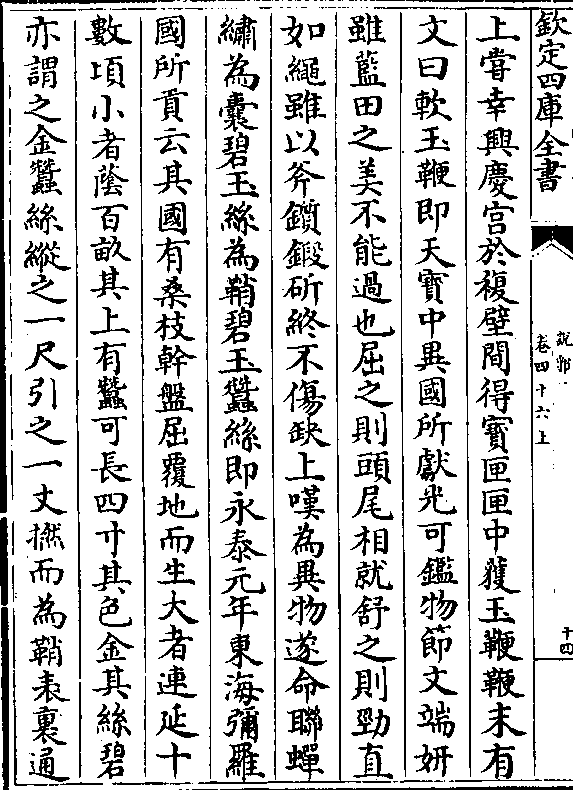 欽定四庫全書
說郛
卷四十六上
十四
上嘗幸興慶宮於複壁間得寳匣匣中獲玉鞭鞭末有
文曰軟玉鞭即天寳中異國所獻光可鑑物節文端妍
雖藍田之美不能過也屈之則頭尾相就舒之則勁直
如繩雖以斧鑕鍛斫終不傷缺上嘆為異物遂命聨蟬
繡為囊碧玉絲為鞘碧玉蠶絲即永泰元年東海彌羅
國所貢云其國有桑枝幹盤屈覆地而生大者連延十
數頃小者蔭百畝其上有蠶可長四寸其色金其絲碧
亦謂之金蠶絲縱之一尺引之一丈撚而為鞘表裏通